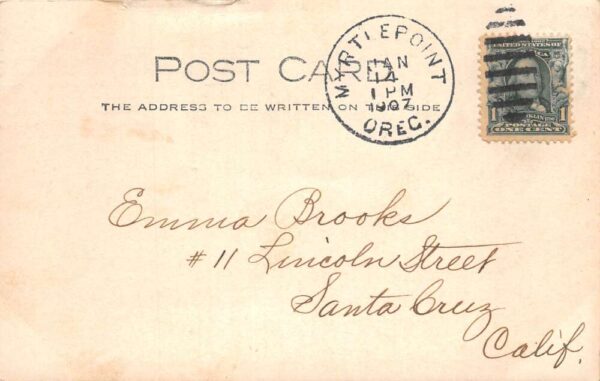 POST CARD
THE ADDRESS TO BE WRITTEN ON THIS SIDE
MYRTLEPOINT
JAN
14
1 PM
1907
OREG.
UNITED STATES OF
1
POSTAGE
ONE CENT
Emma Brooks
#11 Lincoln Street
Santa Cruz
Calif.